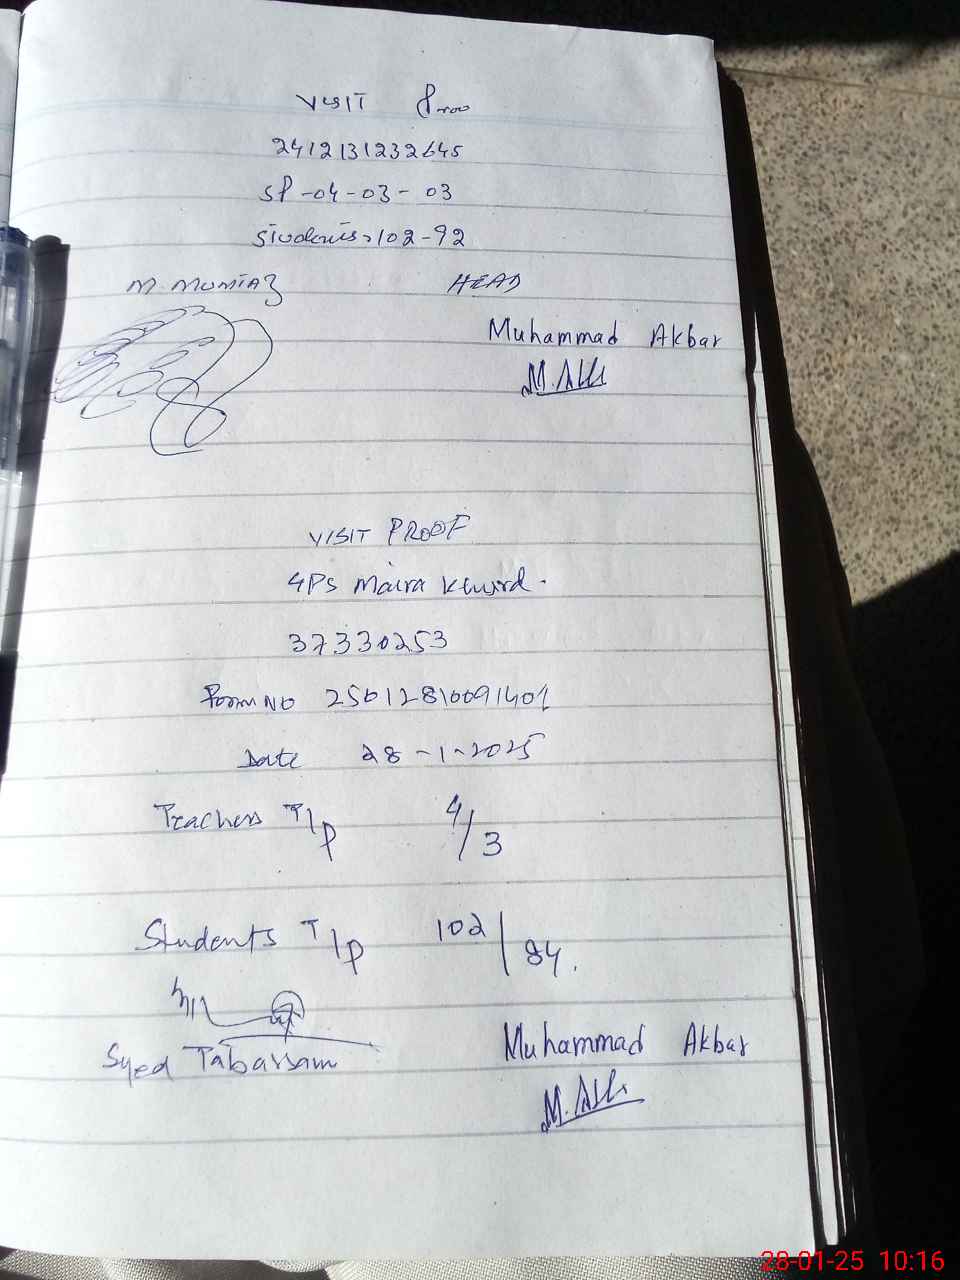 VISIT Proo
2412131232645
SP-04-03-03
Students 102-92
M. MUMTAZ HEAD
Muhammad Akbar
VISIT PROOF
GPS Maira Khurd.
37330253
Form NO 25012810091401
Date 28-1-2025
Teachers T/P 4/3
Students T/P 102/84.
Syed Tabarsam Muhammad Akbar
28-01-25 10:16